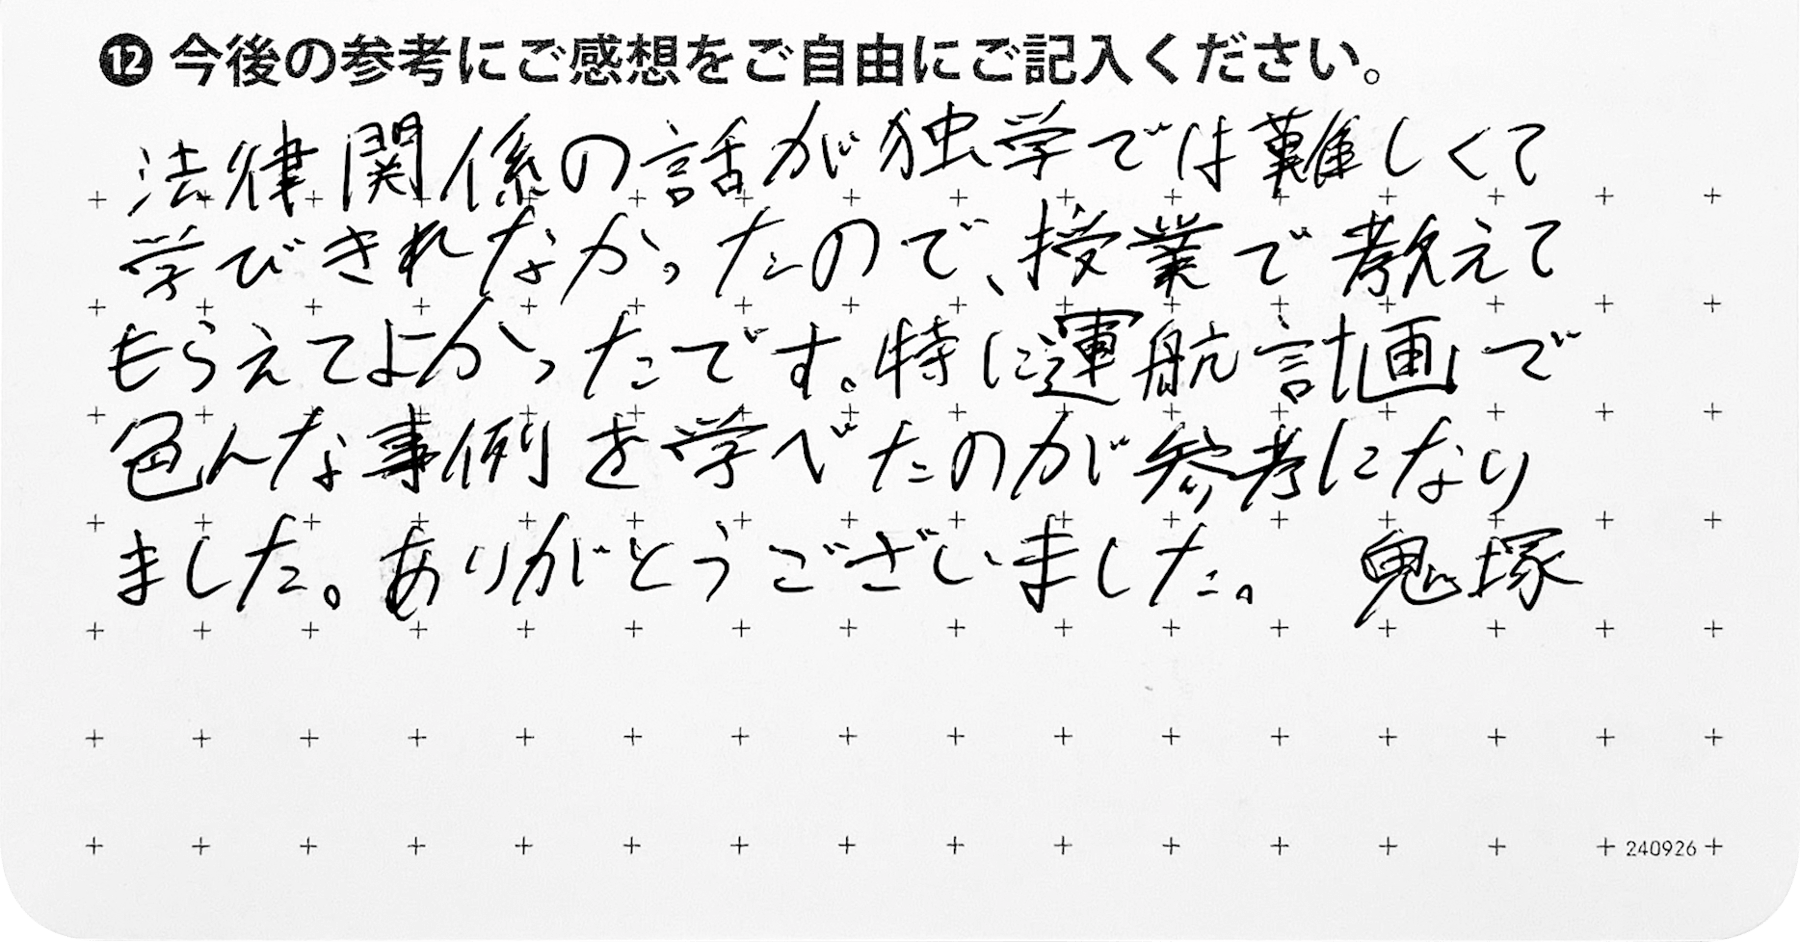 ⓬ 今後の参考にご感想をご自由にご記入ください。
法律関係の話が独学では難しくて
学びきれなかったので、授業で教えて
もらえてよかったです。特に運航計画で
色んな事例を学べたのが参考になり
ました。ありがとうございました。 鬼塚
240926